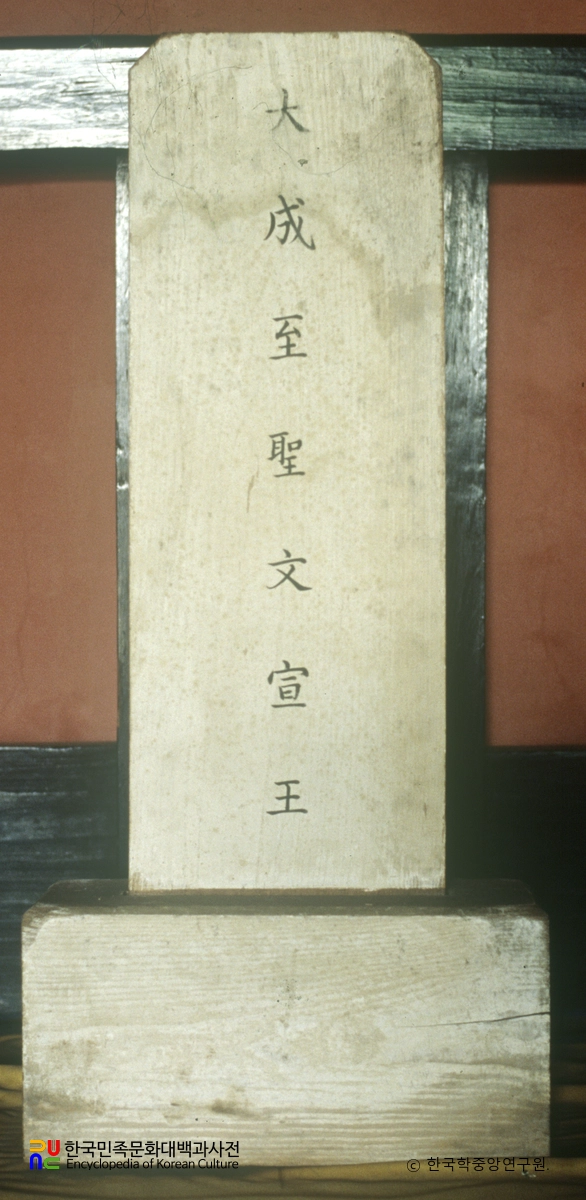 大成至聖文宣王
한국민족문화대백과사전
Encyclopedia of Korean Culture
© 한국학중앙연구원.